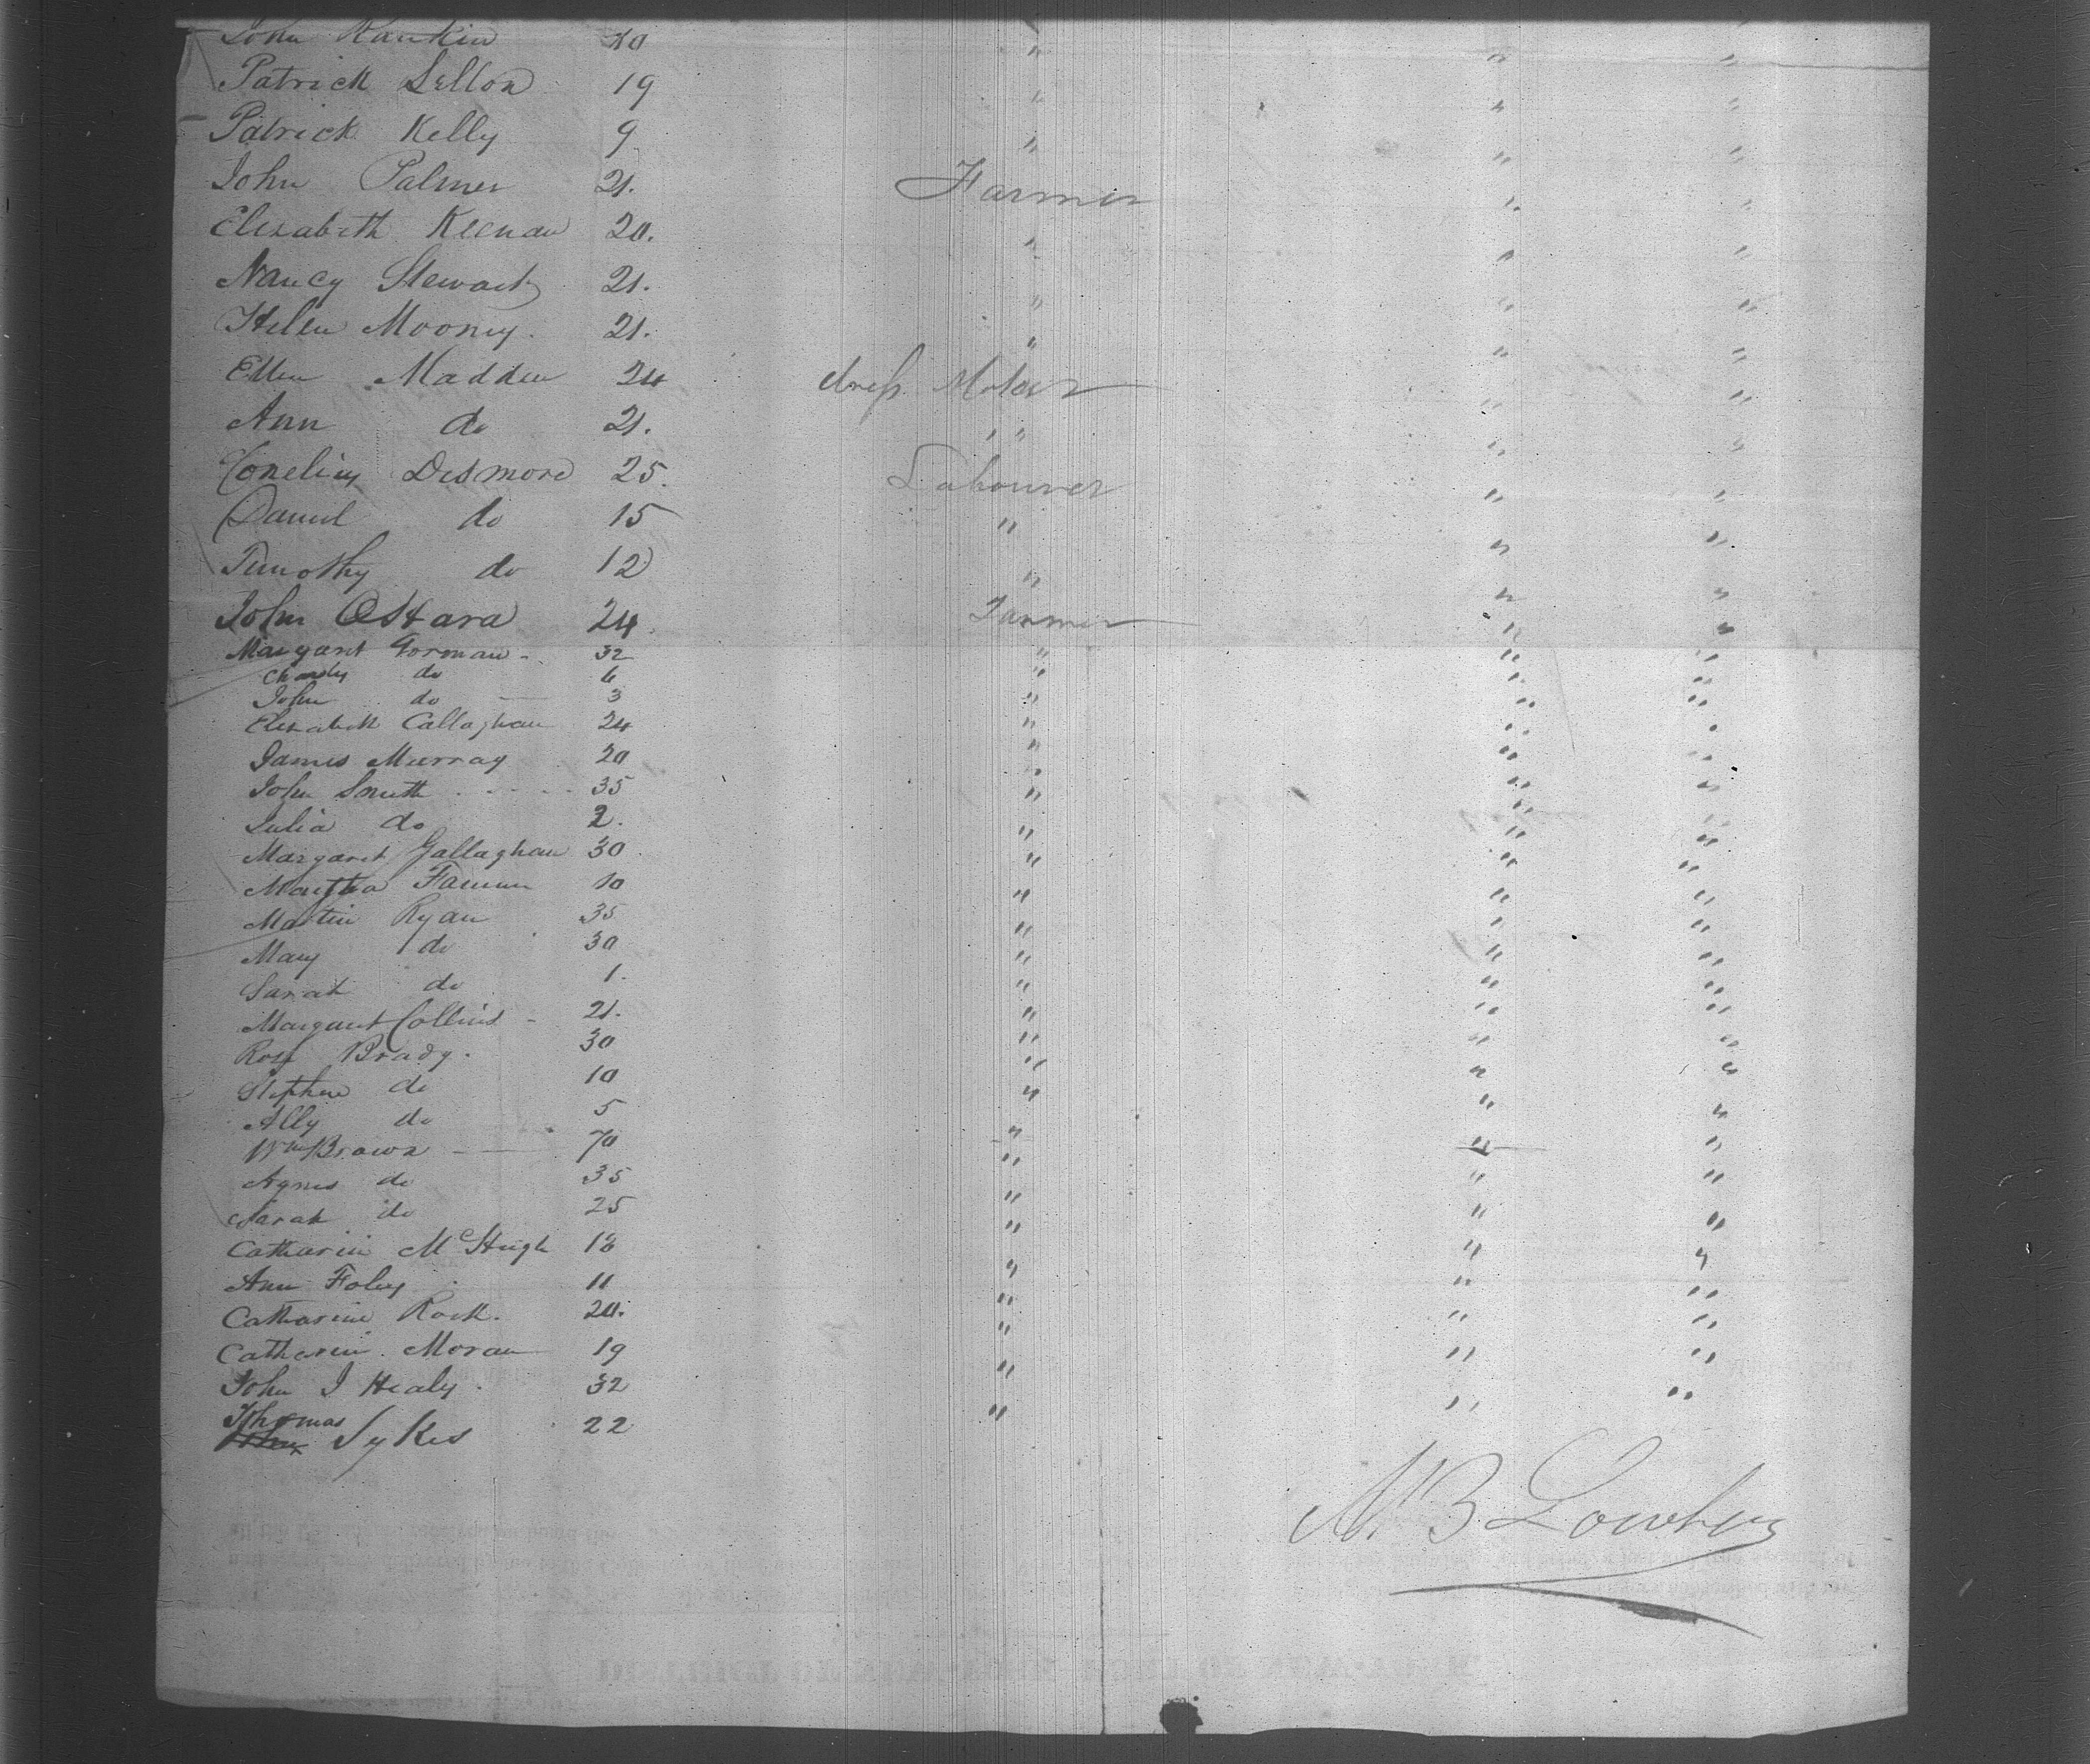 John Rankin 20 " " "
Patrick Lellon 19 " " "
Patrick Kelly 9 " " "
John Palmer 21. Farmer " "
Elizabeth Keenan 20. " " "
Nancy Stewart 21. " " "
Helen Mooney. 21. " " "
Ellen Madden 24 dress Maker " "
Ann do 21. " " "
Conelius Desmond 25. Labourer " "
Daniel do 15 " " "
Timothy do 12 " " "
John OHara 24. Farmer " "
Margaret Gorman - 32 " " "
Charles do 6 " " "
John do 3 " " "
Elizabeth Callaghan 24 " " "
James Murray 20 " " "
John Smith 35 " " "
Julia do 2. " " "
Margaret Gallaghan 30 " " "
Martha 10 " " "
Martin Ryan 35 " " "
Mary do 30 " " "
Sarah do 1. " " "
Margaret Collins - 21. " " "
Rose Brady. 30 " " "
Stephen do 10 " " "
Ally do 5 " " "
Wm Brown — 70 " " "
Agnes do 35 " " "
Sarah do 25 " " "
Catharine McHugh 18 " " "
Ann Foley 11 " " "
Catharine Rock. 20. " " "
Catherine Moran 19 " " "
John J Healy. 32 " " "
Thomas Sykes 22 " " "